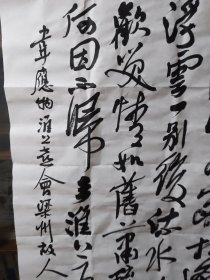 浮雲一别後流水
歡笑情如舊蕭疏
何因不歸去淮上有
韋應物淮上喜會梁州故人